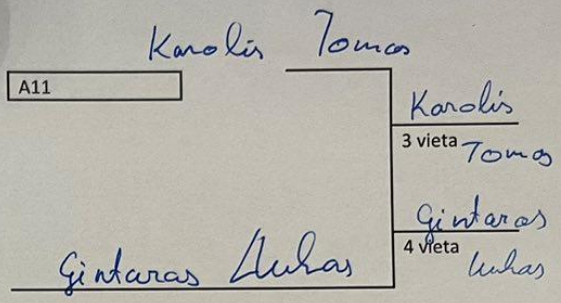 Karolis Tomas
A11
Karolis
3 vieta Tomas
Gintaras
4 vieta Lukas
Gintaras Lukas